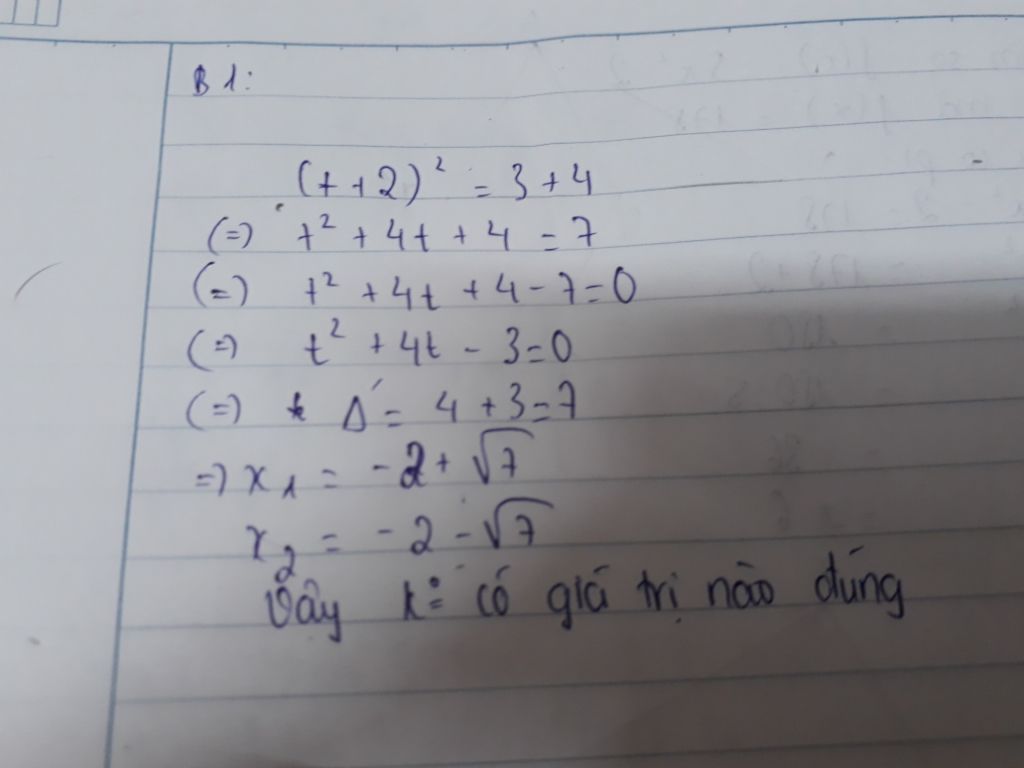 B1:
(t+2)² = 3+4
(=) t² + 4t + 4 = 7
(=) t² + 4t + 4 - 7 = 0
(=) t² + 4t - 3 = 0
(=) Δ' = 4 + 3 = 7
=) x₁ = -2 + √7
x₂ = -2 - √7
Vậy k° có giá trị nào đúng